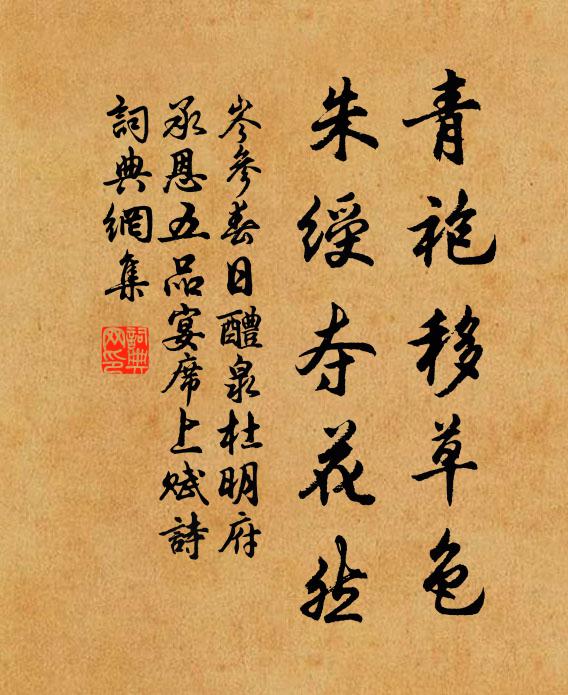 青袍移草色
朱绶夺花然
岑參春日醴泉杜明府
承恩五品宴席上賦詩
詞典網集
詞典網印